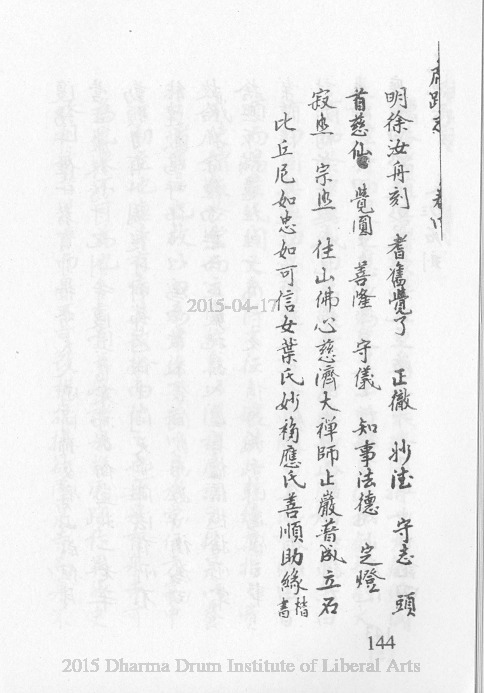 明徐汝舟刻 耆舊覺了 正徹 妙 守志 頭
首慈仙 覺圓 善隆 守儀 知事法德 定燈
寂思 宗思 住山佛心慈濟大禪師止巖普成立石
比丘尼如忠如可信女葉氏妙裪應氏善順助緣 楷書
144
2015-04-17
2015 Dharma Drum Institute of Liberal Arts